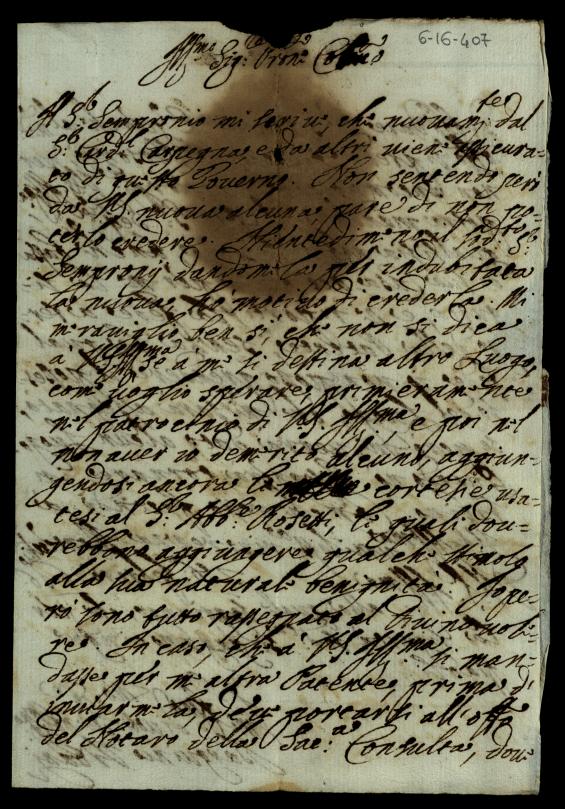 6-16-407
Ill.mo Sig.r Pron.e Col.mo
Il S.r Sempronio mi scrive, che nuovam.te dal
S.r Card.l Carpegna, e da altri vien assicura-
to di questo Governo. Non sentendo però
da V.S. nuova alcuna pare di non po-
terlo credere. Niantedimeno il sud.to S.r
Sempronij dandomela per indubitata
la nuova, ho motivo di crederla. Mi
meraviglio ben sì, che non si dica
a V.S. Ill.ma se a me si destina altro Luogo,
come voglio sperare, primieramente
nel patrocinio di V.S. Ill.ma, e poi nel
non aver io demerito alcuno, aggiun-
gendosi ancora le cortesie usa-
tesi al S.r Abb.e Rosetti, le quali dov-
rebbono aggiungere qualche stimolo
alla sua naturale benignità. Io pe-
rò sono tutto rassegnato al Divino vole-
re. In caso, che a V.S. Ill.ma si man-
dasse per me altra Patente, prima di
inviarmela, deve portarsi all'off.o
del Notaro della Sac.a Consulta, dove